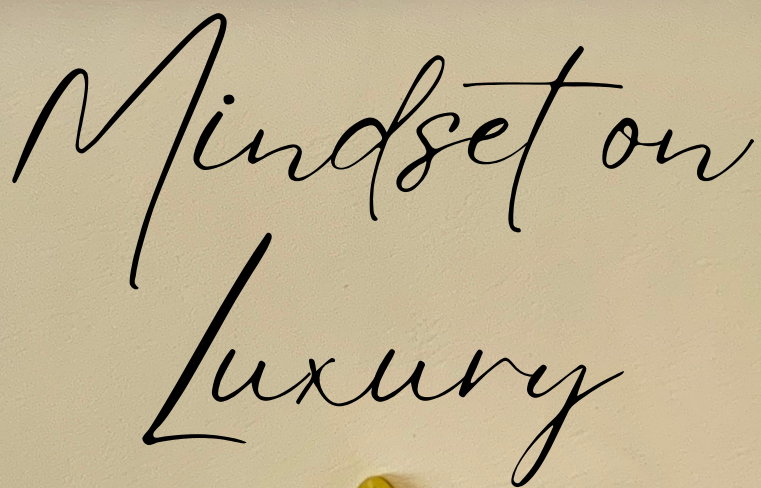 Mindset on
Luxury